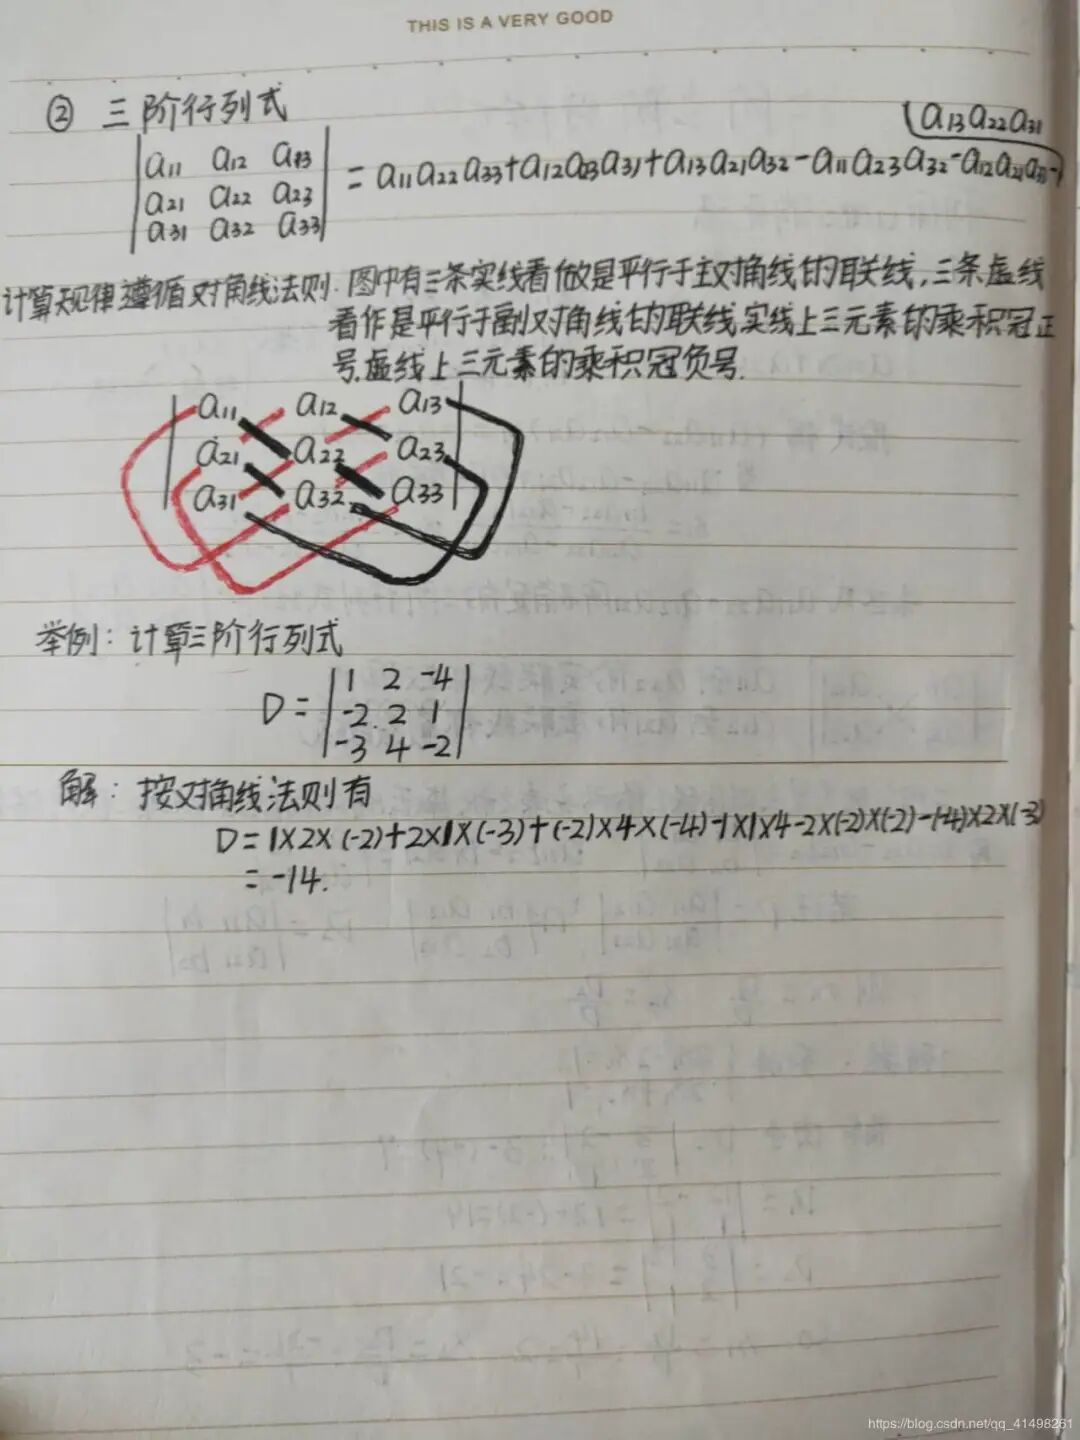 THIS IS A VERY GOOD
② 三阶行列式
a13a22a31
a11 a12 a13
a21 a22 a23
a31 a32 a33
= a11a22a33+a12a23a31+a13a21a32-a11a23a32-a12a21a33-
计算规律遵循对角线法则:图中有三条实线看做是平行于主对角线的联线,三条虚线
看作是平行于副对角线的联线,实线上三元素的乘积冠正
号,虚线上三元素的乘积冠负号.
a11 a12 a13
a21 a22 a23
a31 a32 a33
举例:计算三阶行列式
D=
1 2 -4
-2 2 1
-3 4 -2
解:按对角线法则有
D=1×2×(-2)+2×1×(-3)+(-2)×4×(-4)-1×1×4-2×(-2)×(-2)-(-4)×2×(-3)
=-14.
https://blog.csdn.net/qq_41498261